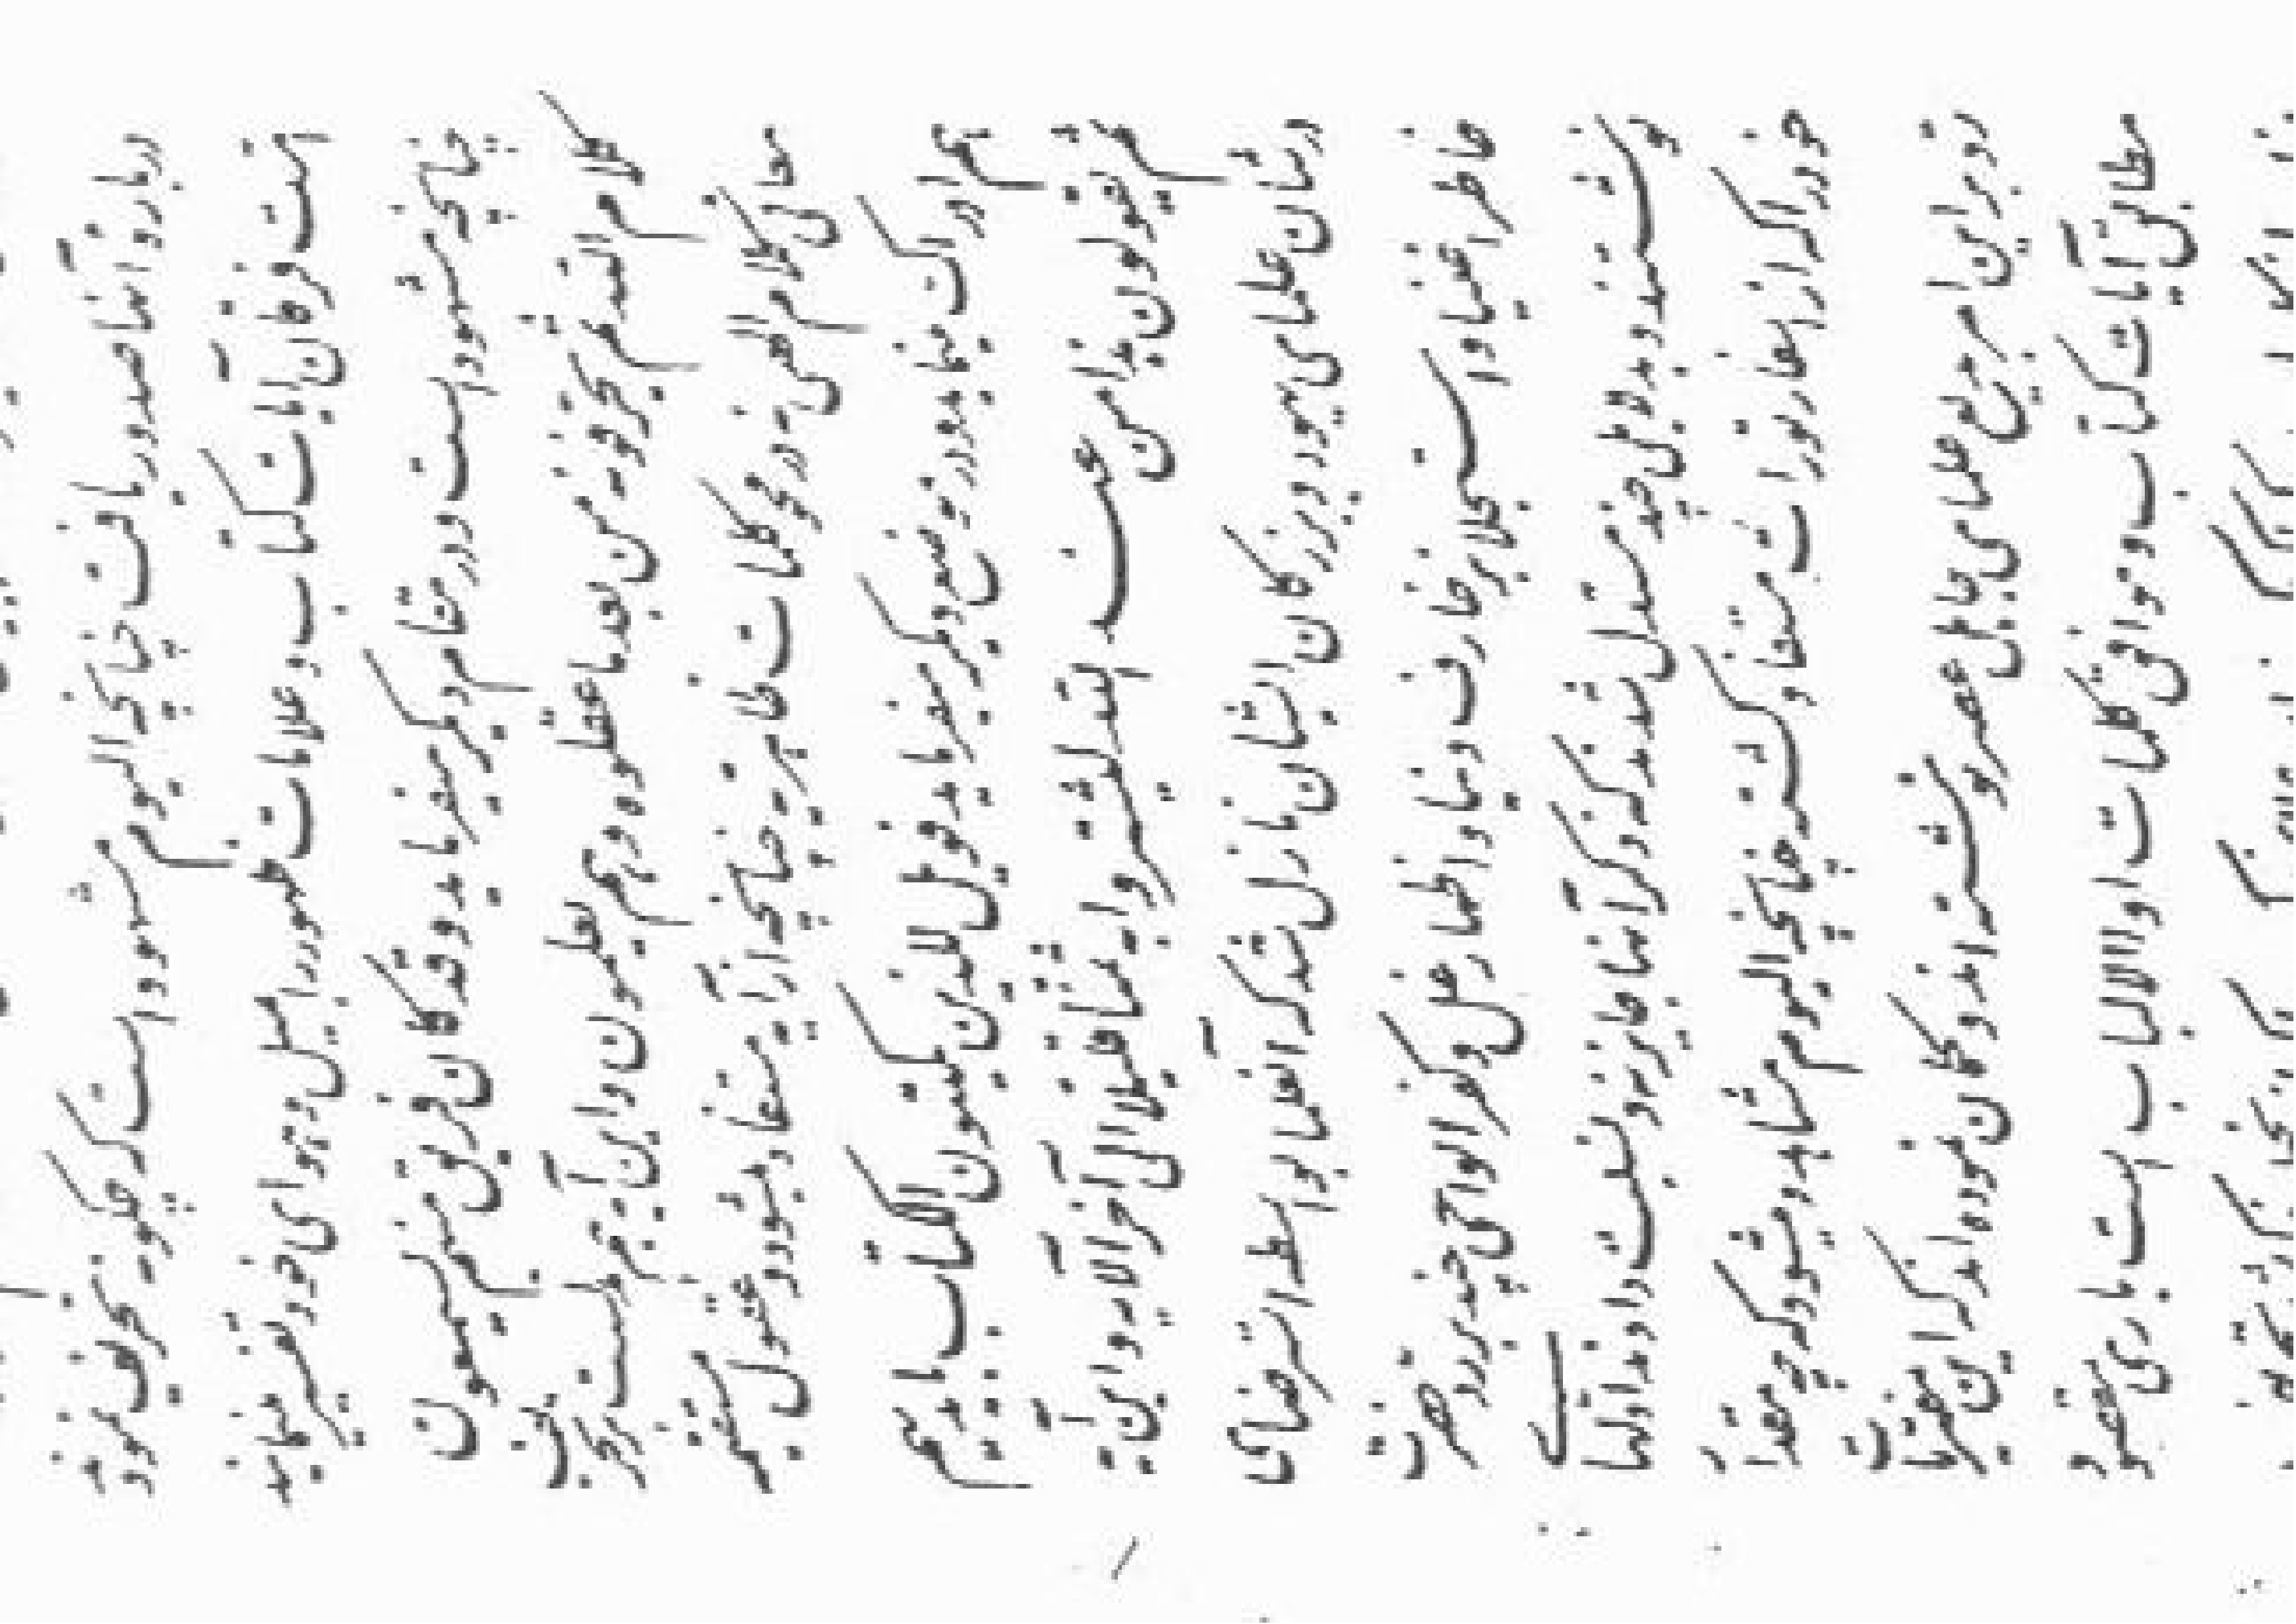 درباره آنها صدور یافت چنانچه الیوم مشهود است که چگونه تحریف نمودند
امت فرقان آیات کتاب و علامات ظهور را بمیل و هوای خود تفسیر مینمایند
چنانچه مشهود است و در مقام دیگر میفرماید و قد کان فریق منهم یسمعون
کلام الله ثم یحرفونه من بعد ما عقلوه و هم یعلمون و این آیه هم مدلست بر تحریف
معانی کلام الهی نه در محو کلمات ظاهریه چنانچه از آیه مستفاد میشود و عقول مستقیمه
هم ادراک مینماید و در موضع دیگر میفرماید فویل للذین یکتبون الکتاب بایدیهم
ثم یقولون هذا من عند الله لیشتروا به ثمنا قلیلا الی آخر الآیه و این آیه
در شأن علمای یهود و بزرگان ایشان نازل شد که آن علما بواسطه استرضای
خاطر اغنیا و استجلاب زخارف دنیا و اظهار غل و کفر الواحی چند بر رد حضرت
نوشتند و بدلایلی چند مستدل شدند که ذکر آنها جایز نه و نسبت دادند ادلهای
خود را که از اسفار تورات مستفاد گشته چنانچه الیوم مشاهده میشود که چه مقدار
رد بر این امر بدیع علمای جاهل عصر نوشته‌اند و گمان نموده‌اند که این مفتریات
مطابق آیات کتاب و موافق کلمات اولوالالباب است باری مقصود